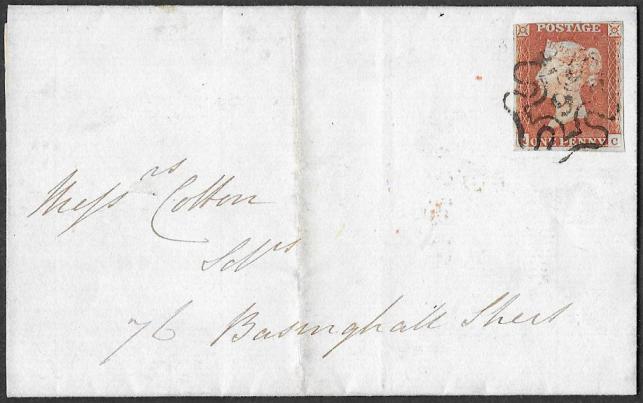 POSTAGE
ONE PENNY
C
Messrs Cotton
Solrs
76 Basinghall Street